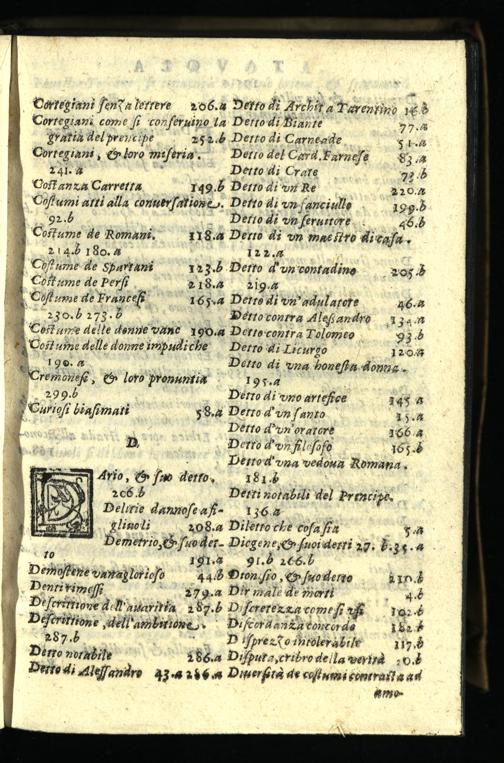 Cortegiani senza lettere 206.a
Cortegiani come si conseruino la
gratia del prencipe 252.b
Cortegiani, & loro miseria.
241.a
Costanza Carretta 149.b
Costumi atti alla conuersatione.
92.b
Costume de Romani. 118.a
214.b 180.a
Costume de Spartani 123.b
Costume de Persi 218.a
Costume de Francesi 165.a
230.b 273.b
Costume delle donne vane 190.a
Costume delle donne impudiche
190.a
Cremonesi, & loro pronuntia
299.b
Curiosi biasimati 58.a
D.
DArio, & suo detto.
206.b
Delitie dannose a fi-
gliuoli 208.a
Demetrio, & suo det-
to 191.a
Demostene vanaglorioso 44.b
Denti rimessi 279.a
Descrittione dell'auaritia 287.b
Descrittione, dell'ambitione.
287.b
Detto notabile 286.a
Detto di Alessandro 43.a 286.a
Detto di Archita Tarentino 16.b
Detto di Biante 77.a
Detto di Carneade 51.a
Detto del Card. Farnese 83.a
Detto di Crate 73.b
Detto di vn Re 220.a
Detto di vn fanciullo 199.b
Detto di vn seruitore 46.b
Detto di vn maestro di casa.
122.a
Detto d'vn contadino 205.b
219.a
Detto di vn'adulatore 46.a
Detto contra Alessandro 134.a
Detto contra Tolomeo 93.b
Detto di Licurgo 120.a
Detto di vna honesta donna.
195.a
Detto di vno artefice 145.a
Detto d'vn santo 15.a
Detto d'vn'oratore 166.a
Detto d'vn filosofo 165.b
Detto d'vna vedoua Romana.
181.b
Detti notabili del Prencipe.
136.a
Diletto che cosa sia 5.a
Diogene, & suoi detti 27.b.35.a
91.b 266.b
Dionisio, & suo detto 210.b
Dir male de morti 4.b
Discretezza come si vsi 102.b
Discordanza concorde 182.b
Disprezzo intolerabile 117.b
Disputa, cribro della verità 20.b
Diuersità de costumi contrasta ad
amo-